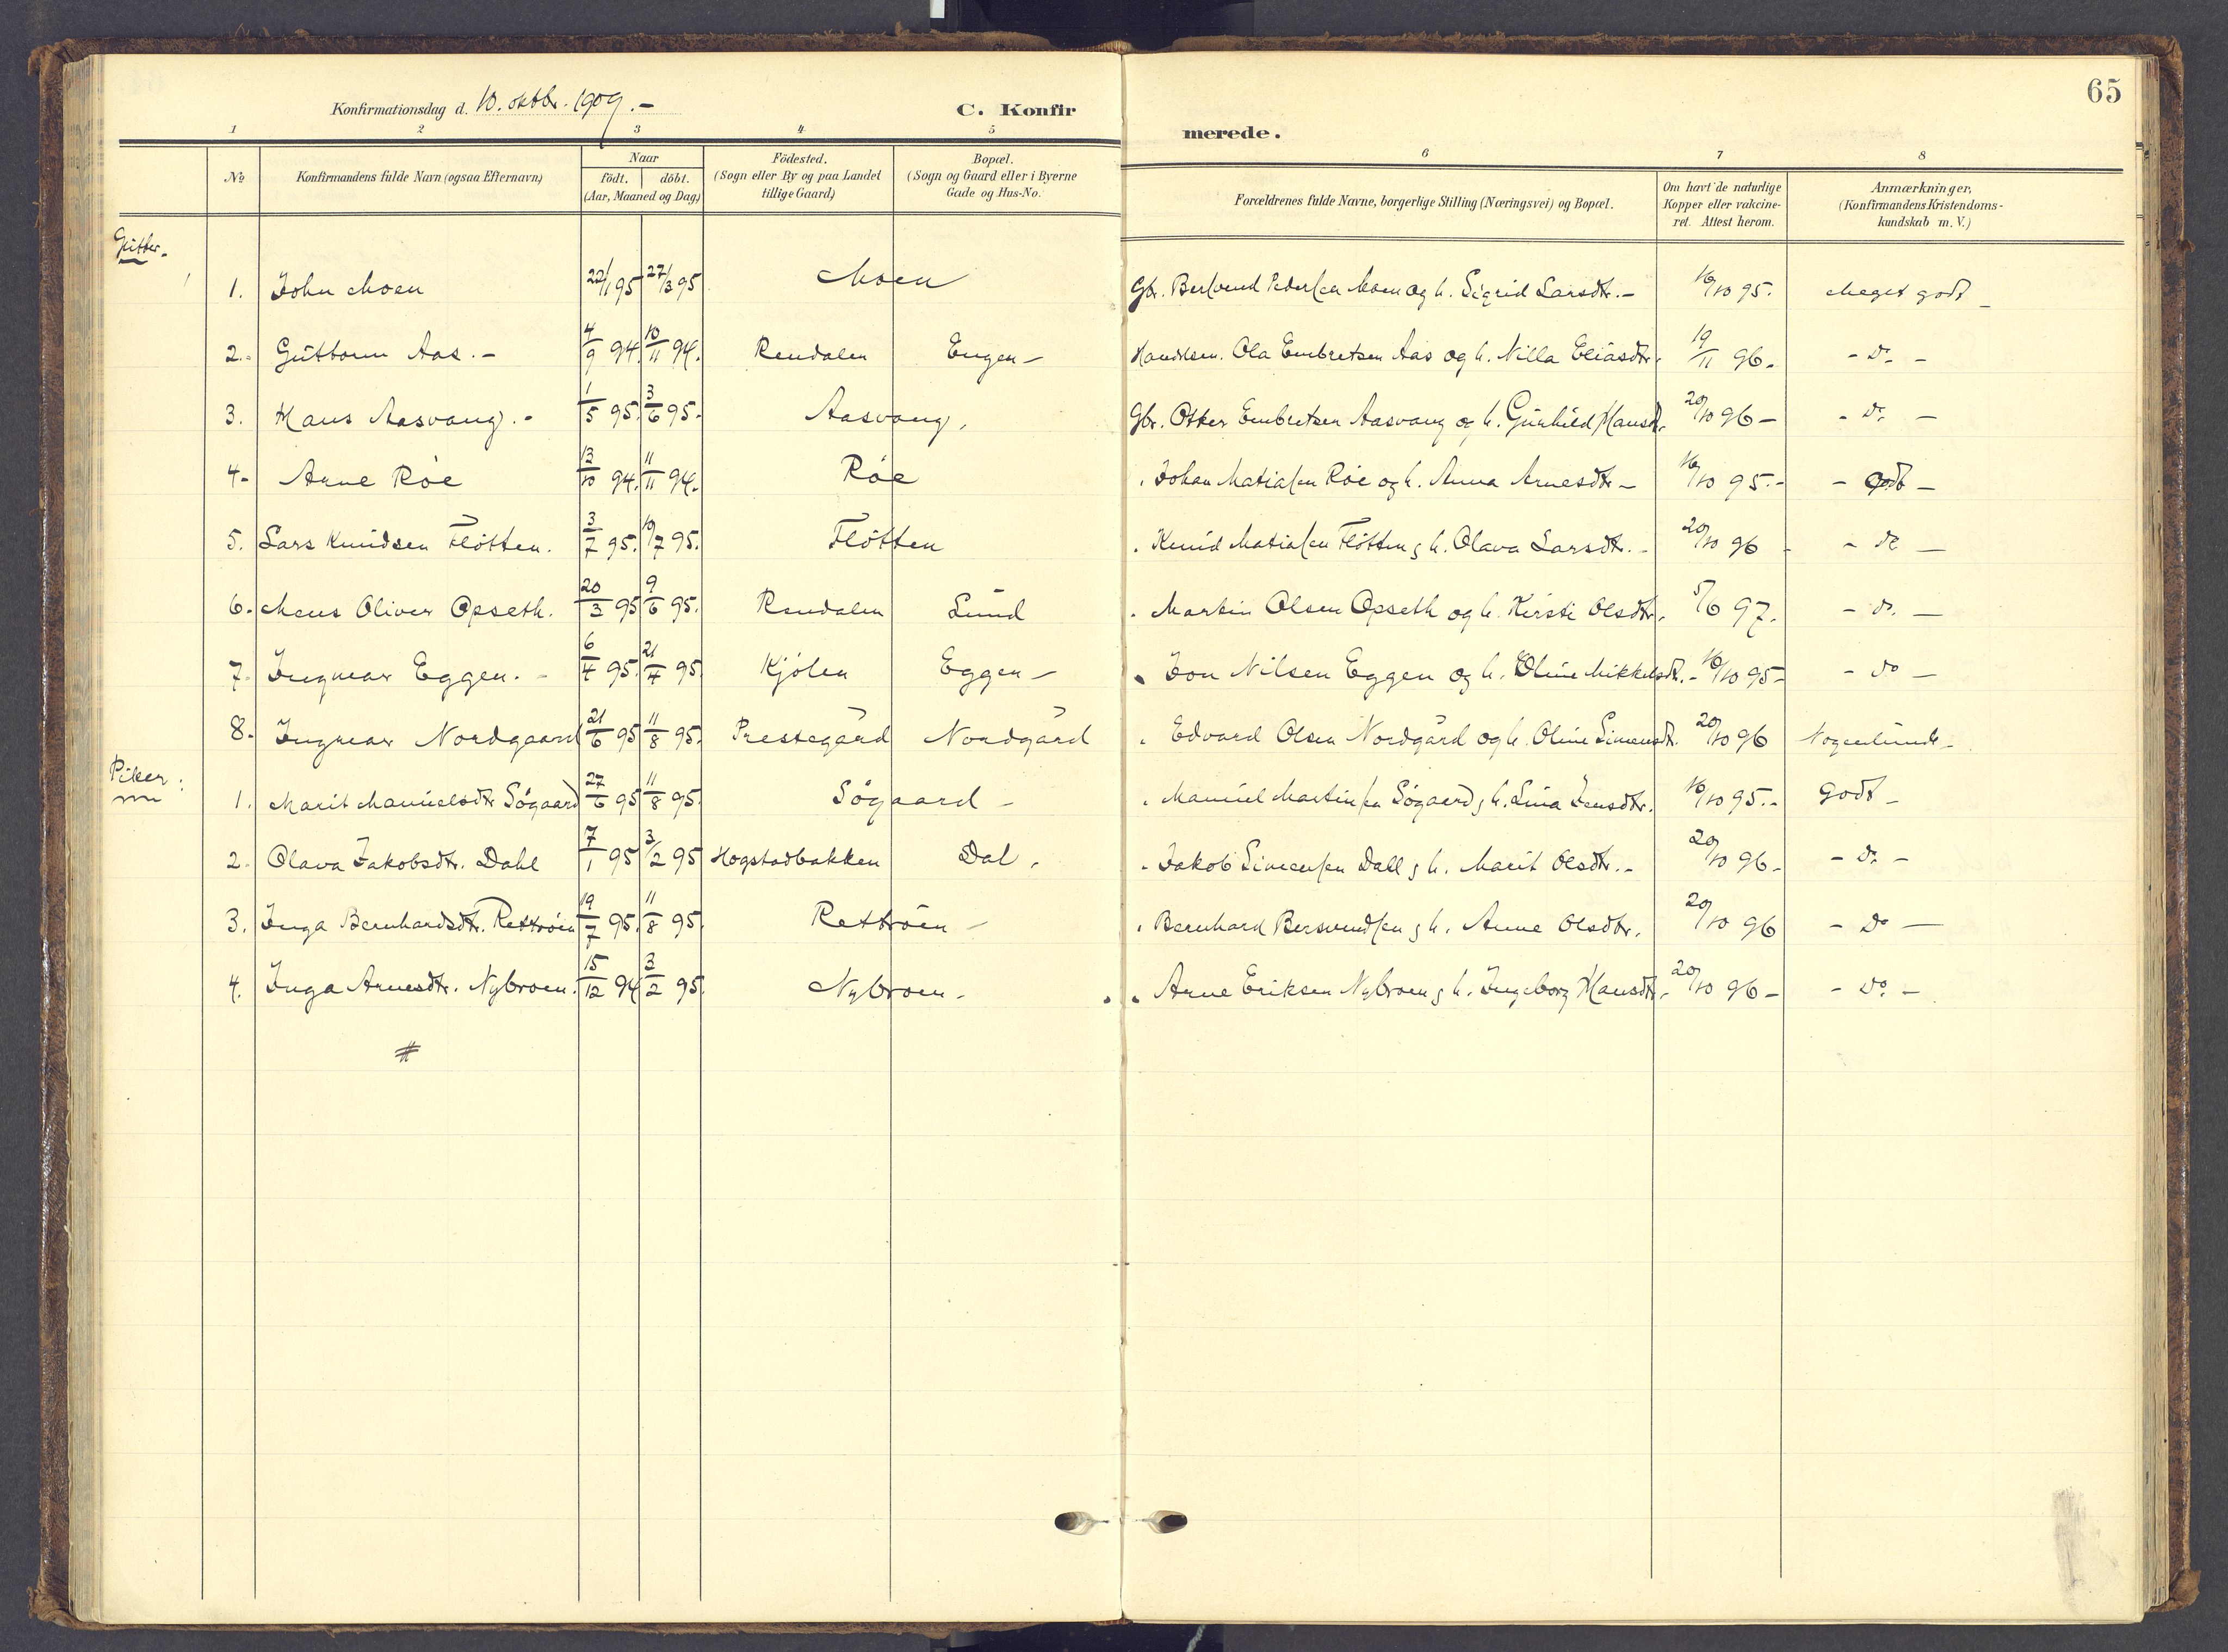 65
Konfirmationsdag d. 10. oktbr. 1909. –
C. Konfirmerede.
1 2 3 4 5 6 7 8
№ | Konfirmandens fulde Navn (ogsaa Efternavn) | Naar födt. döbt. (Aar, Maaned og Dag) | Födested. (Sogn eller By og paa Landet tillige Gaard) | Bopæl. (Sogn og Gaard eller i Byerne Gade og Hus-No. | Forældrenes fulde Navne, borgerlige Stilling (Næringsvei) og Bopæl. | Om havt de naturlige Kopper eller vakcineret. Attest herom. | Anmærkninger, (Konfirmandens Kristendomskundskab m. V.)
Gutter.
1. John Moen 22/1 95 27/3 95 Moen Gbr. Bersvend Pedersen Moen og h. Sigrid Larsdtr. – 16/10 95. Meget godt –
2. Guttorm Aas. – 4/9 94. 10/11 94. Rendalen Engen – Handelsm. Ola Embretsen Aas og h. Nilla Eliasdtr. 19/11 96. – Do. –
3. Hans Aasvang. – 1/5 95. 3/6 95. Aasvang, Gbr. Otter Embretsen Aasvang og h. Gunhild Hansdt. 20/10 96 – – Do. –
4. Arne Röe 13/10 94. 11/11 94. Röe Johan Matiasen Röe og h. Anna Arnesdtr – 16/10 95. – – godt –
5. Lars Knudsen Flötten. 3/7 95. 10/7 95. Flötten Knud Matiasen Flötten g h. Olava Larsdtr. – 20/10 96 – – do –
6. Mens Oliver Opseth. 20/3 95 9/6 95. Rendalen Lund Martin Olsen Opseth og h. Kirsti Olsdtr. 5/6 97. – do. –
7. Ingmar Eggen. – 6/4 95. 21/4 95 Kjölen Eggen – Jon Nilsen Eggen og h. Oline Mikkelsdt. – 16/10 95 – – do –
8. Ingmar Nordgaard 21/6 95 11/8 95. Prestegård Nordgård Edvard Olsen Nordgård og h. Oline Simensdt. 20/10 96 Nogenlunde –
Piker:
1. Marit Manuelsdtr Sögaard 27/6 95 11/8 95. Sögaard – Manuel Martinsen Sögaard g h. Lina Jensdtr. 16/10 95. – Godt –
2. Olava Jakobsdtr. Dahl 7/1 95 3/2 95 Hogstadbakken Dal. Jakob Simensen Dall g h. Marit Olsdtr. – 20/10 96 – – Do. –
3. Inga Bernhardsdtr. Rettröen 19/7 95. 11/8 95. Rettröen – Bernhard Bersvendsen g h. Anne Olsdtr. 20/10 96 – Do –
4. Inga Arnesdtr. Nybroen. 15/12 94 3/2 95. Nybroen – Arne Eriksen Nybroen g h. Ingeborg Hansdtr. 20/10 96 – – Do. –